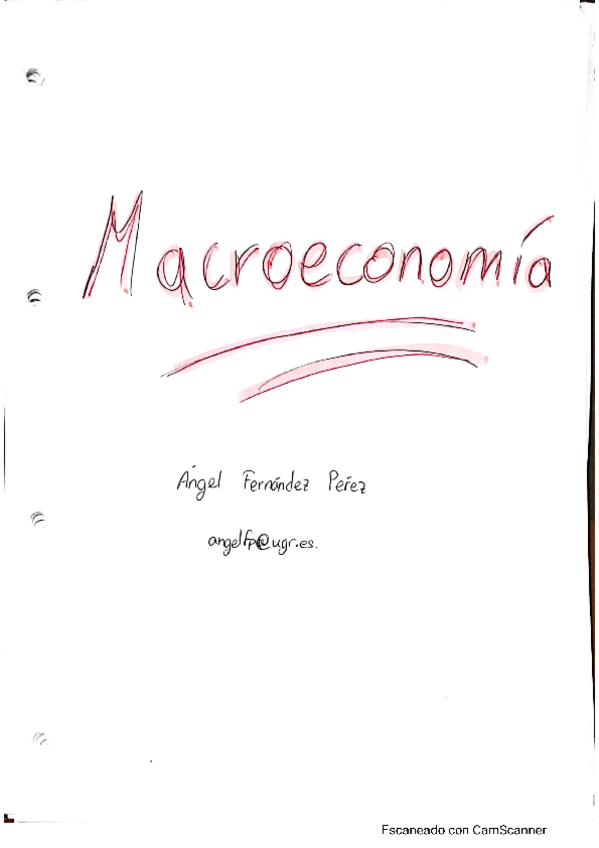 Macroeconomía
Ángel Fernández Pérez
angelfp@ugr.es.
Escaneado con CamScanner